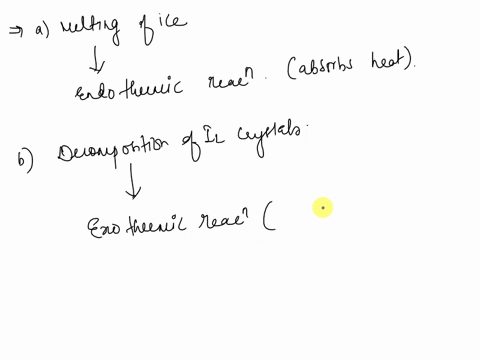 ⇒ a) Melting of ice
↓
Endothermic reacⁿ. (absorbs heat).
b) Decomposition of I2 crystals.
↓
Exothermic reacⁿ (